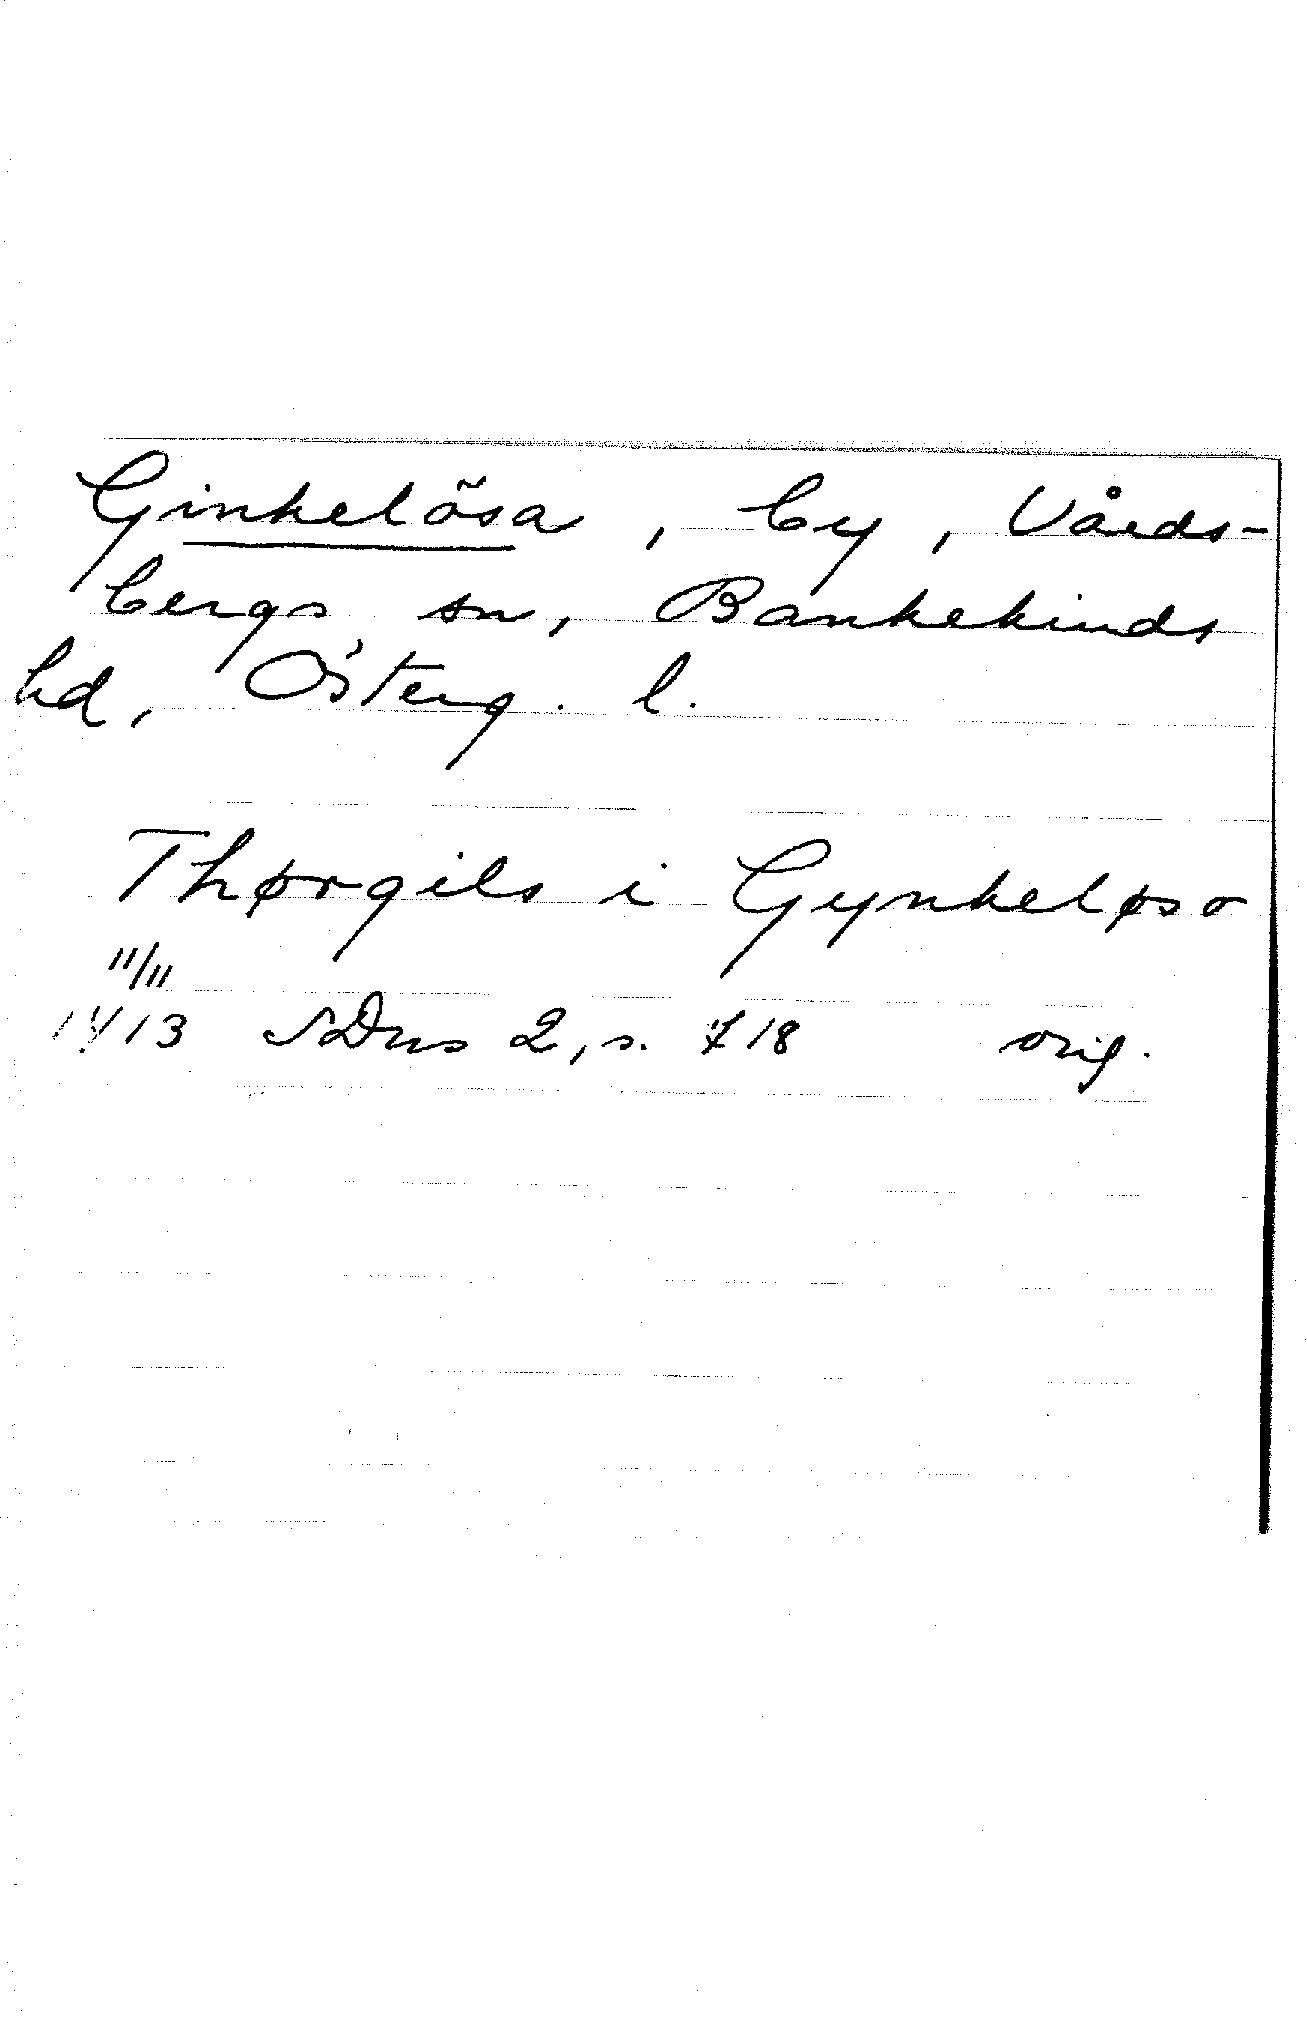 Ginkelösa, by, Vårds-
bergs sn, Bankekinds
hd, Österg. l.
Thørgils i Gynkeløso
11/11
1413 SDns 2, s. 718 orig.